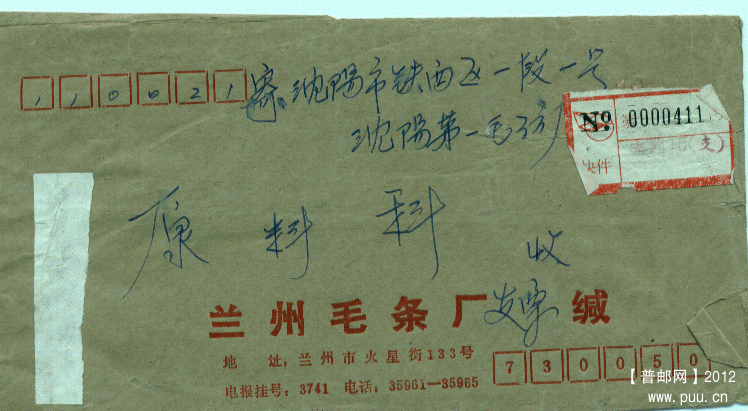 110021 寄 沈陽市铁西区一段一号
沈陽第一毛纺厂
No 0000411
快件 (支)
原料科 收
兰州毛条厂 发票 缄
地 址: 兰州市火星街133号
730050
电报挂号: 3741 电话: 35961—35965
【普邮网】2012
www.puu.cn